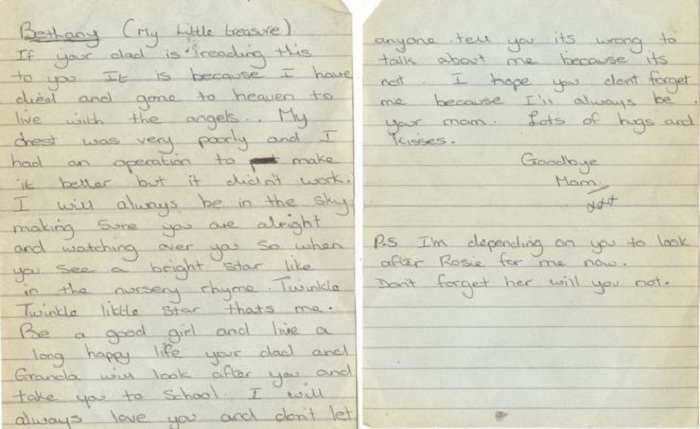 Bethany (My Little treasure).
If your dad is reading this
to you It is because I have
died and gone to heaven to
live with the angels.. My
chest was very poorly and I
had an operation to make
it better but it didn't work.
I will always be in the sky
making sure you are alright
and watching over you so when
you see a bright star like
in the nursery rhyme Twinkle
Twinkle little star thats me.
Be a good girl and live a
long happy life your dad and
Granda will look after you and
take you to school. I will
always love you and don't let
anyone tell you its wrong to
talk about me because its
not. I hope you dont forget
me because I'll always be
your mam. Lots of hugs and
kisses.
Goodbye
Mam
xxx
P.S I'm depending on you to look
after Rosie for me now.
Don't forget her will you not.